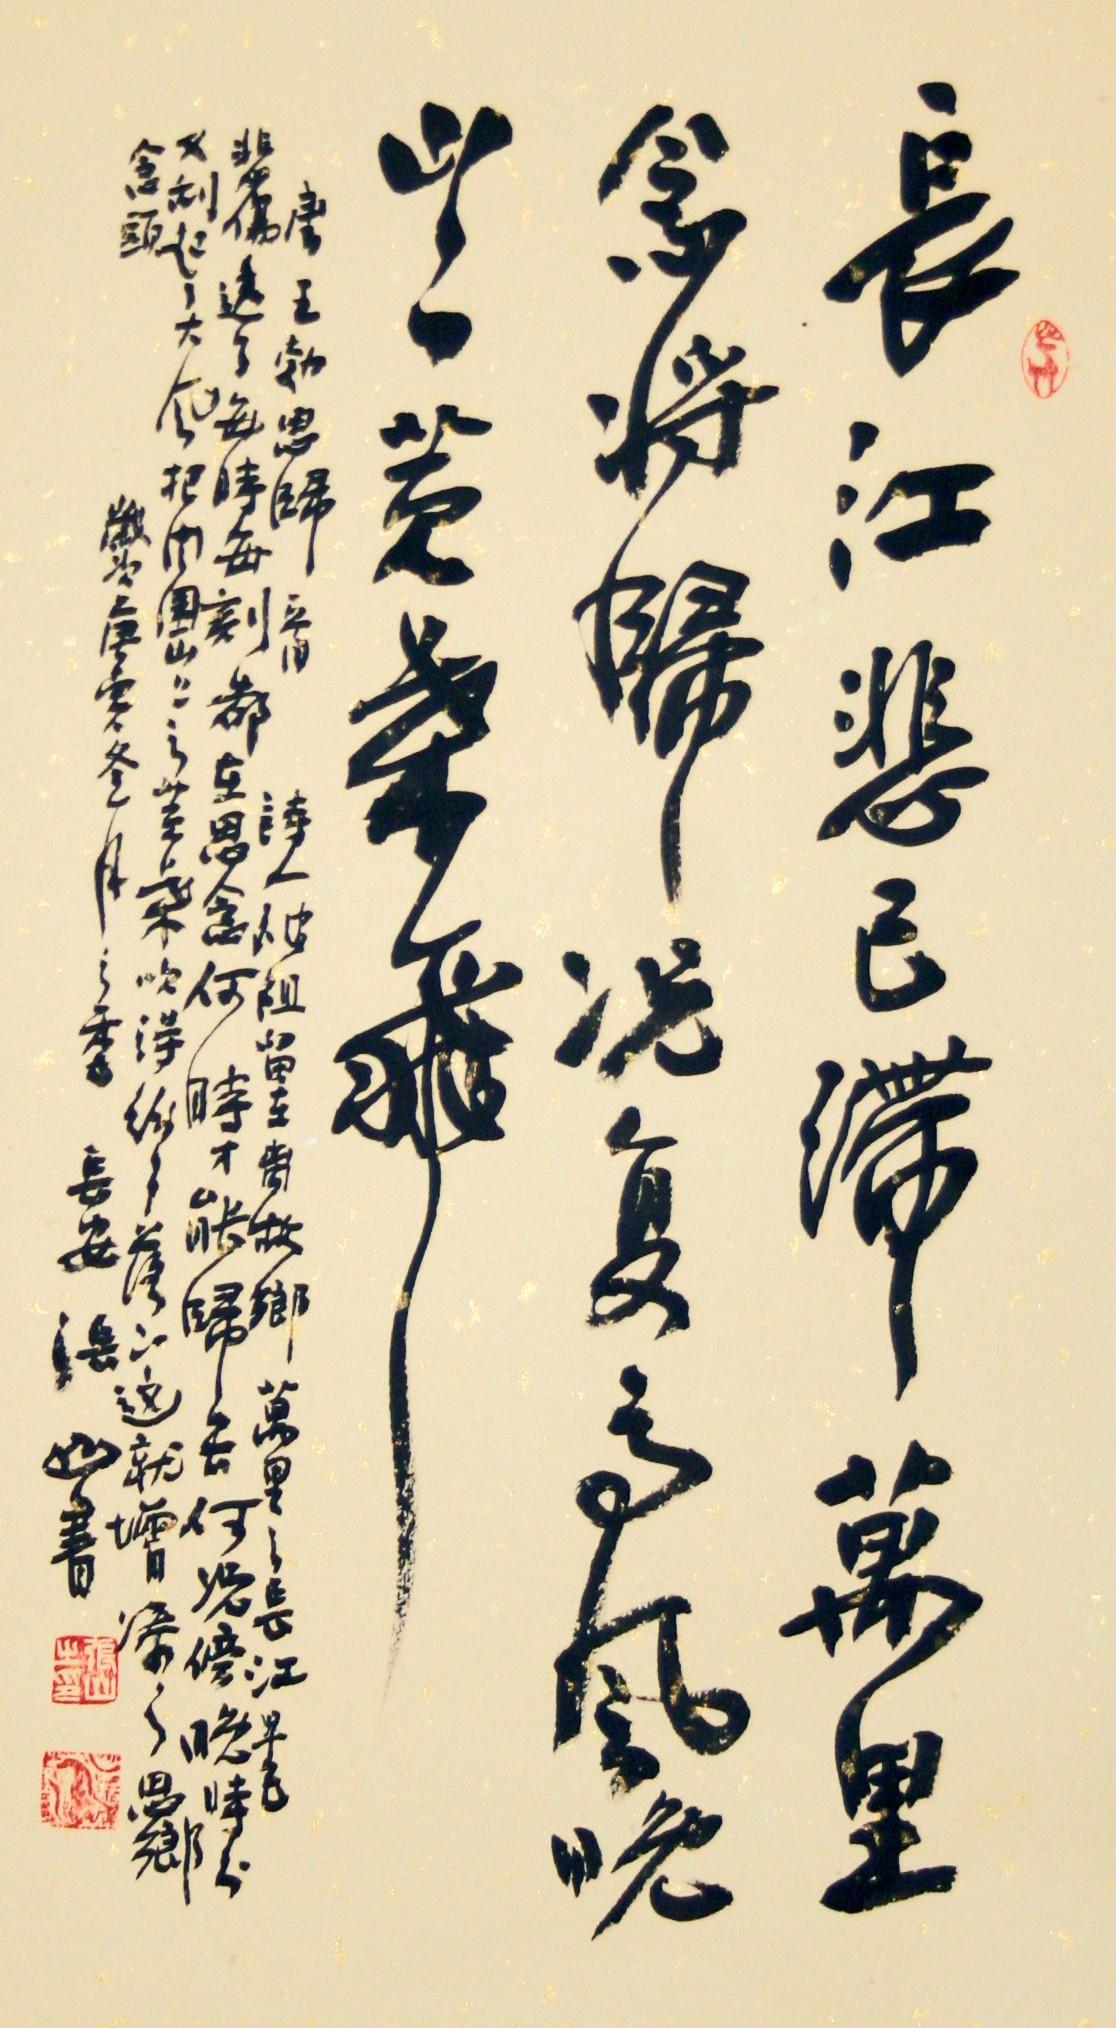 長江悲已滯萬里
念將歸況复高風晚
山山黃葉飛
唐王勃思歸 詩人被阻留在 鄉萬里之長江早已
悲傷透了每時每刻都在思念何時才能歸去何況傍晚時分
又刮起了大風把周圍山上之黃葉吹得紛紛落下這就增添了思鄉
念頭
庚寅冬月之季 長安 張 山書